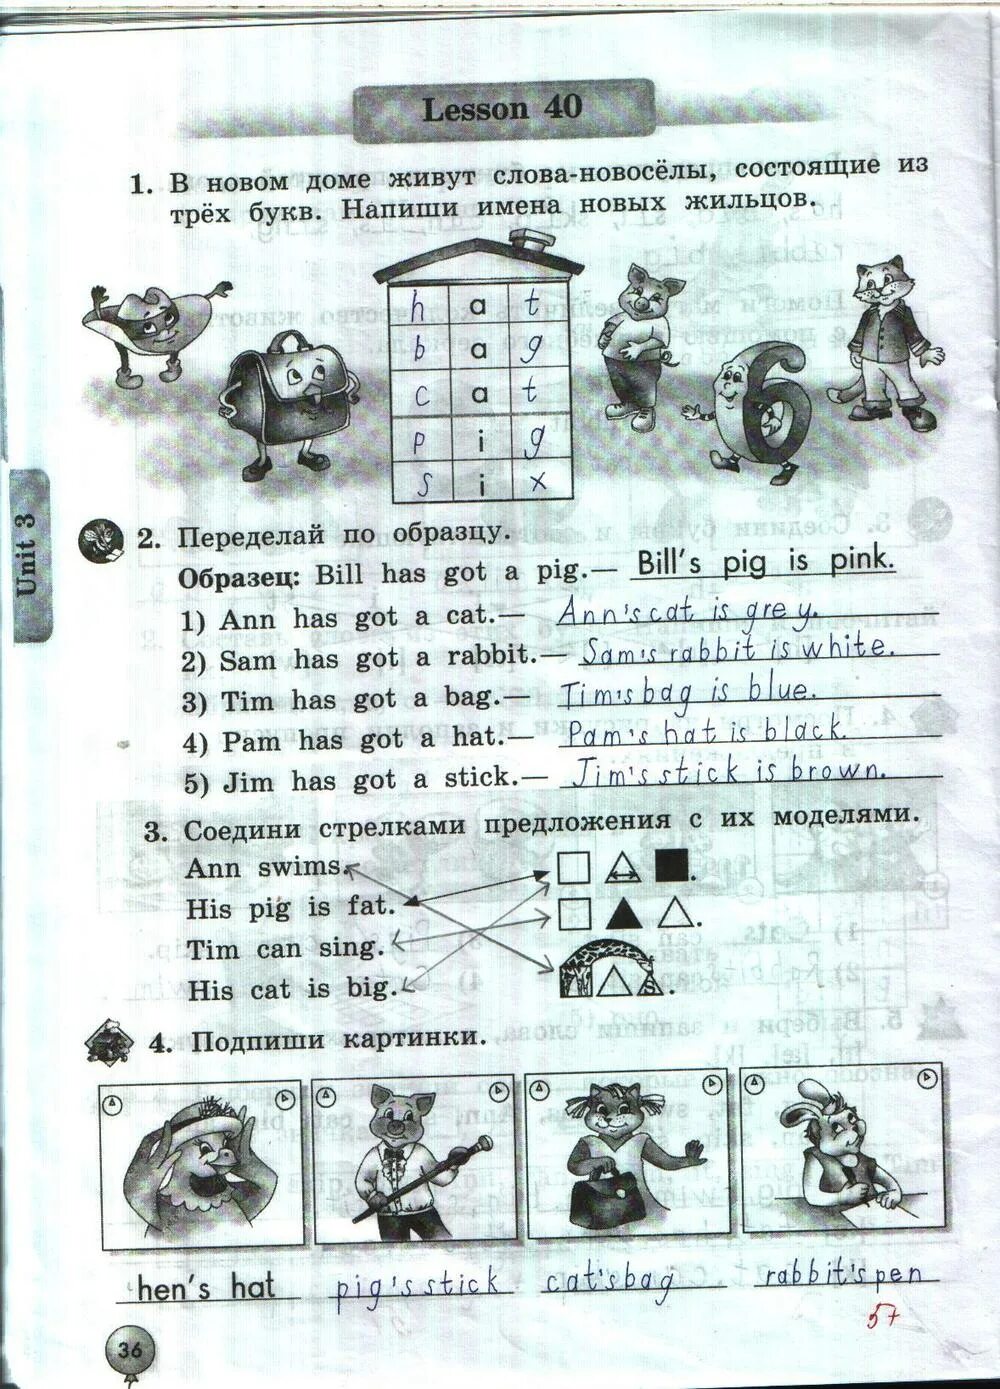 Lesson 40
1. В новом доме живут слова-новосёлы, состоящие из
трёх букв. Напиши имена новых жильцов.
h a t
b a g
c a t
p i g
s i x
Unit 3
2. Переделай по образцу.
Образец: Bill has got a pig.— Bill's pig is pink.
1) Ann has got a cat.— Ann's cat is grey.
2) Sam has got a rabbit.— Sam's rabbit is white.
3) Tim has got a bag. Tim's bag is blue.
4) Pam has got a hat.— Pam's hat is black.
5) Jim has got a stick.— Jim's stick is brown.
3. Соедини стрелками предложения с их моделями.
Ann swims.
His pig is fat.
Tim can sing.
His cat is big.
4. Подпиши картинки.
hen's hat pig's stick cat's bag rabbit's pen
5+
36